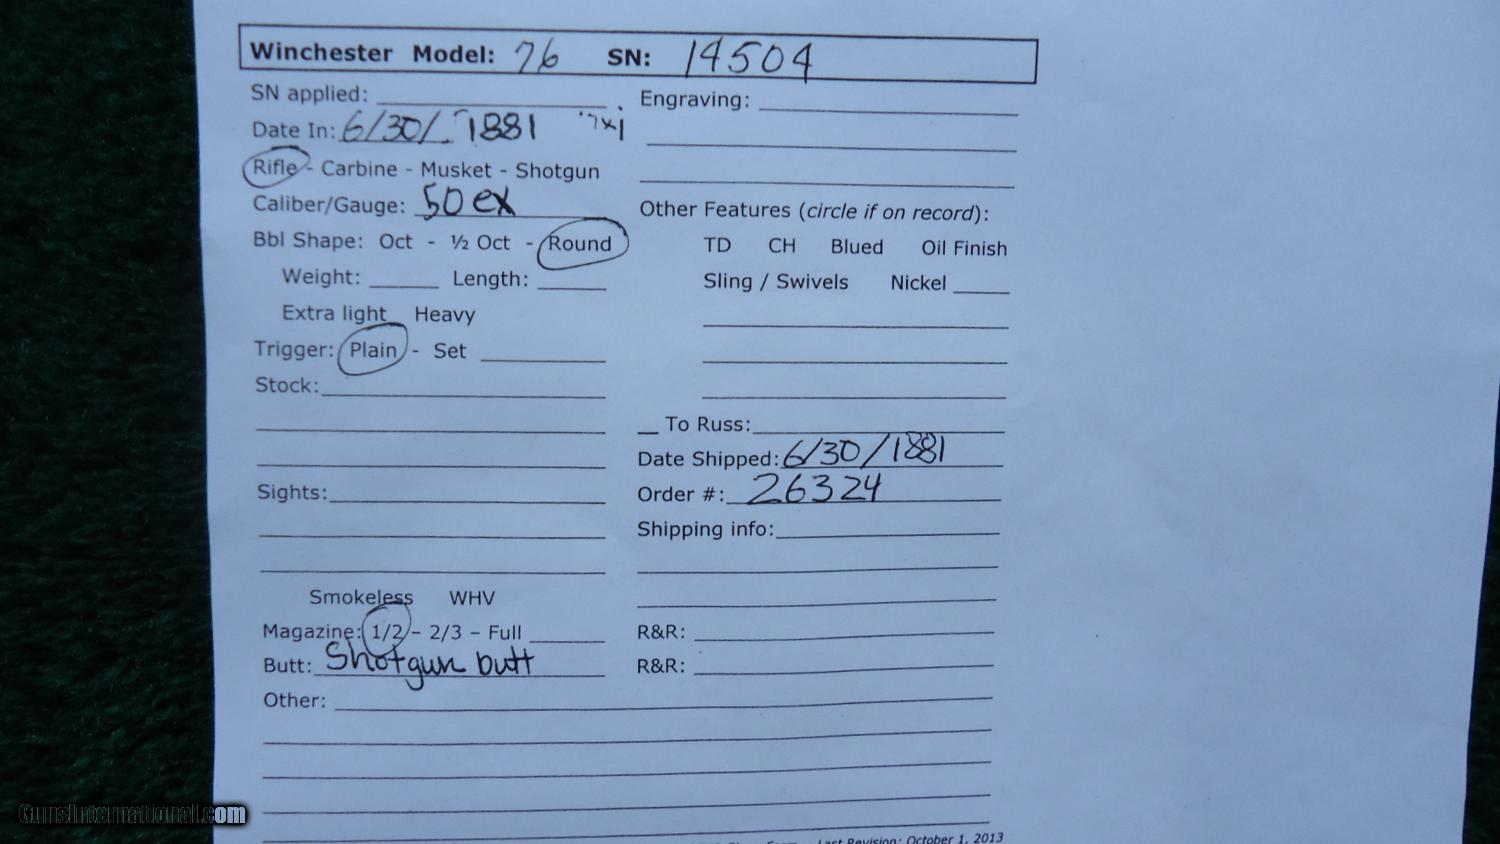 Winchester Model: 76 SN: 14504
SN applied:
Date In: 6/30/ 1881
Rifle - Carbine - Musket - Shotgun
Caliber/Gauge: 50 ex
Bbl Shape: Oct - ½ Oct - Round
Weight: Length:
Extra light Heavy
Trigger: Plain - Set
Stock:
Sights:
Smokeless WHV
Magazine: 1/2 - 2/3 - Full
Butt: Shotgun butt
Other:
Engraving:
Other Features (circle if on record):
TD CH Blued Oil Finish
Sling / Swivels Nickel
To Russ:
Date Shipped: 6/30/1881
Order #: 26324
Shipping info:
R&R:
R&R:
Last Revision: October 1, 2013
GunsInternational.com